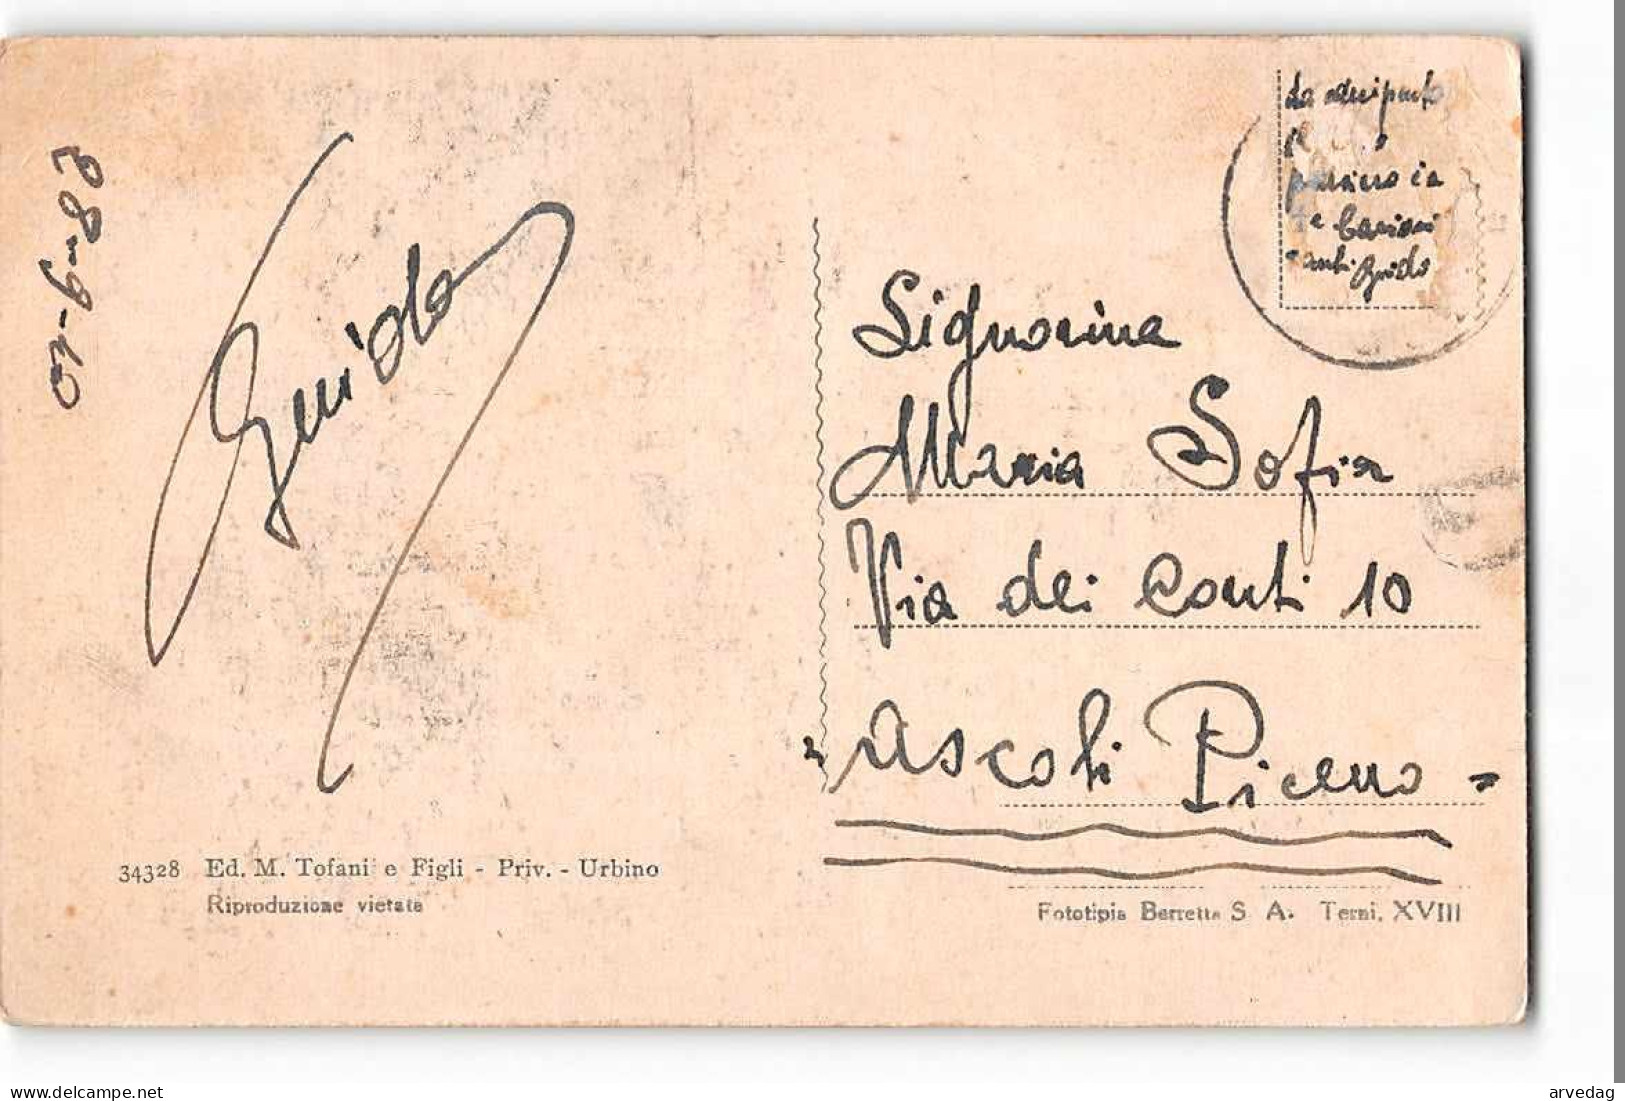 Guido
La
pensiero
te bacioni
Guido
Signorina
Maria Sofia
Via dei Conti 10
Ascoli Piceno =
34328 Ed. M. Tofani e Figli - Priv. - Urbino
Riproduzione vietata
Fototipia Berretta S. A. Terni, XVIII
www.delcampe.net
arvedag